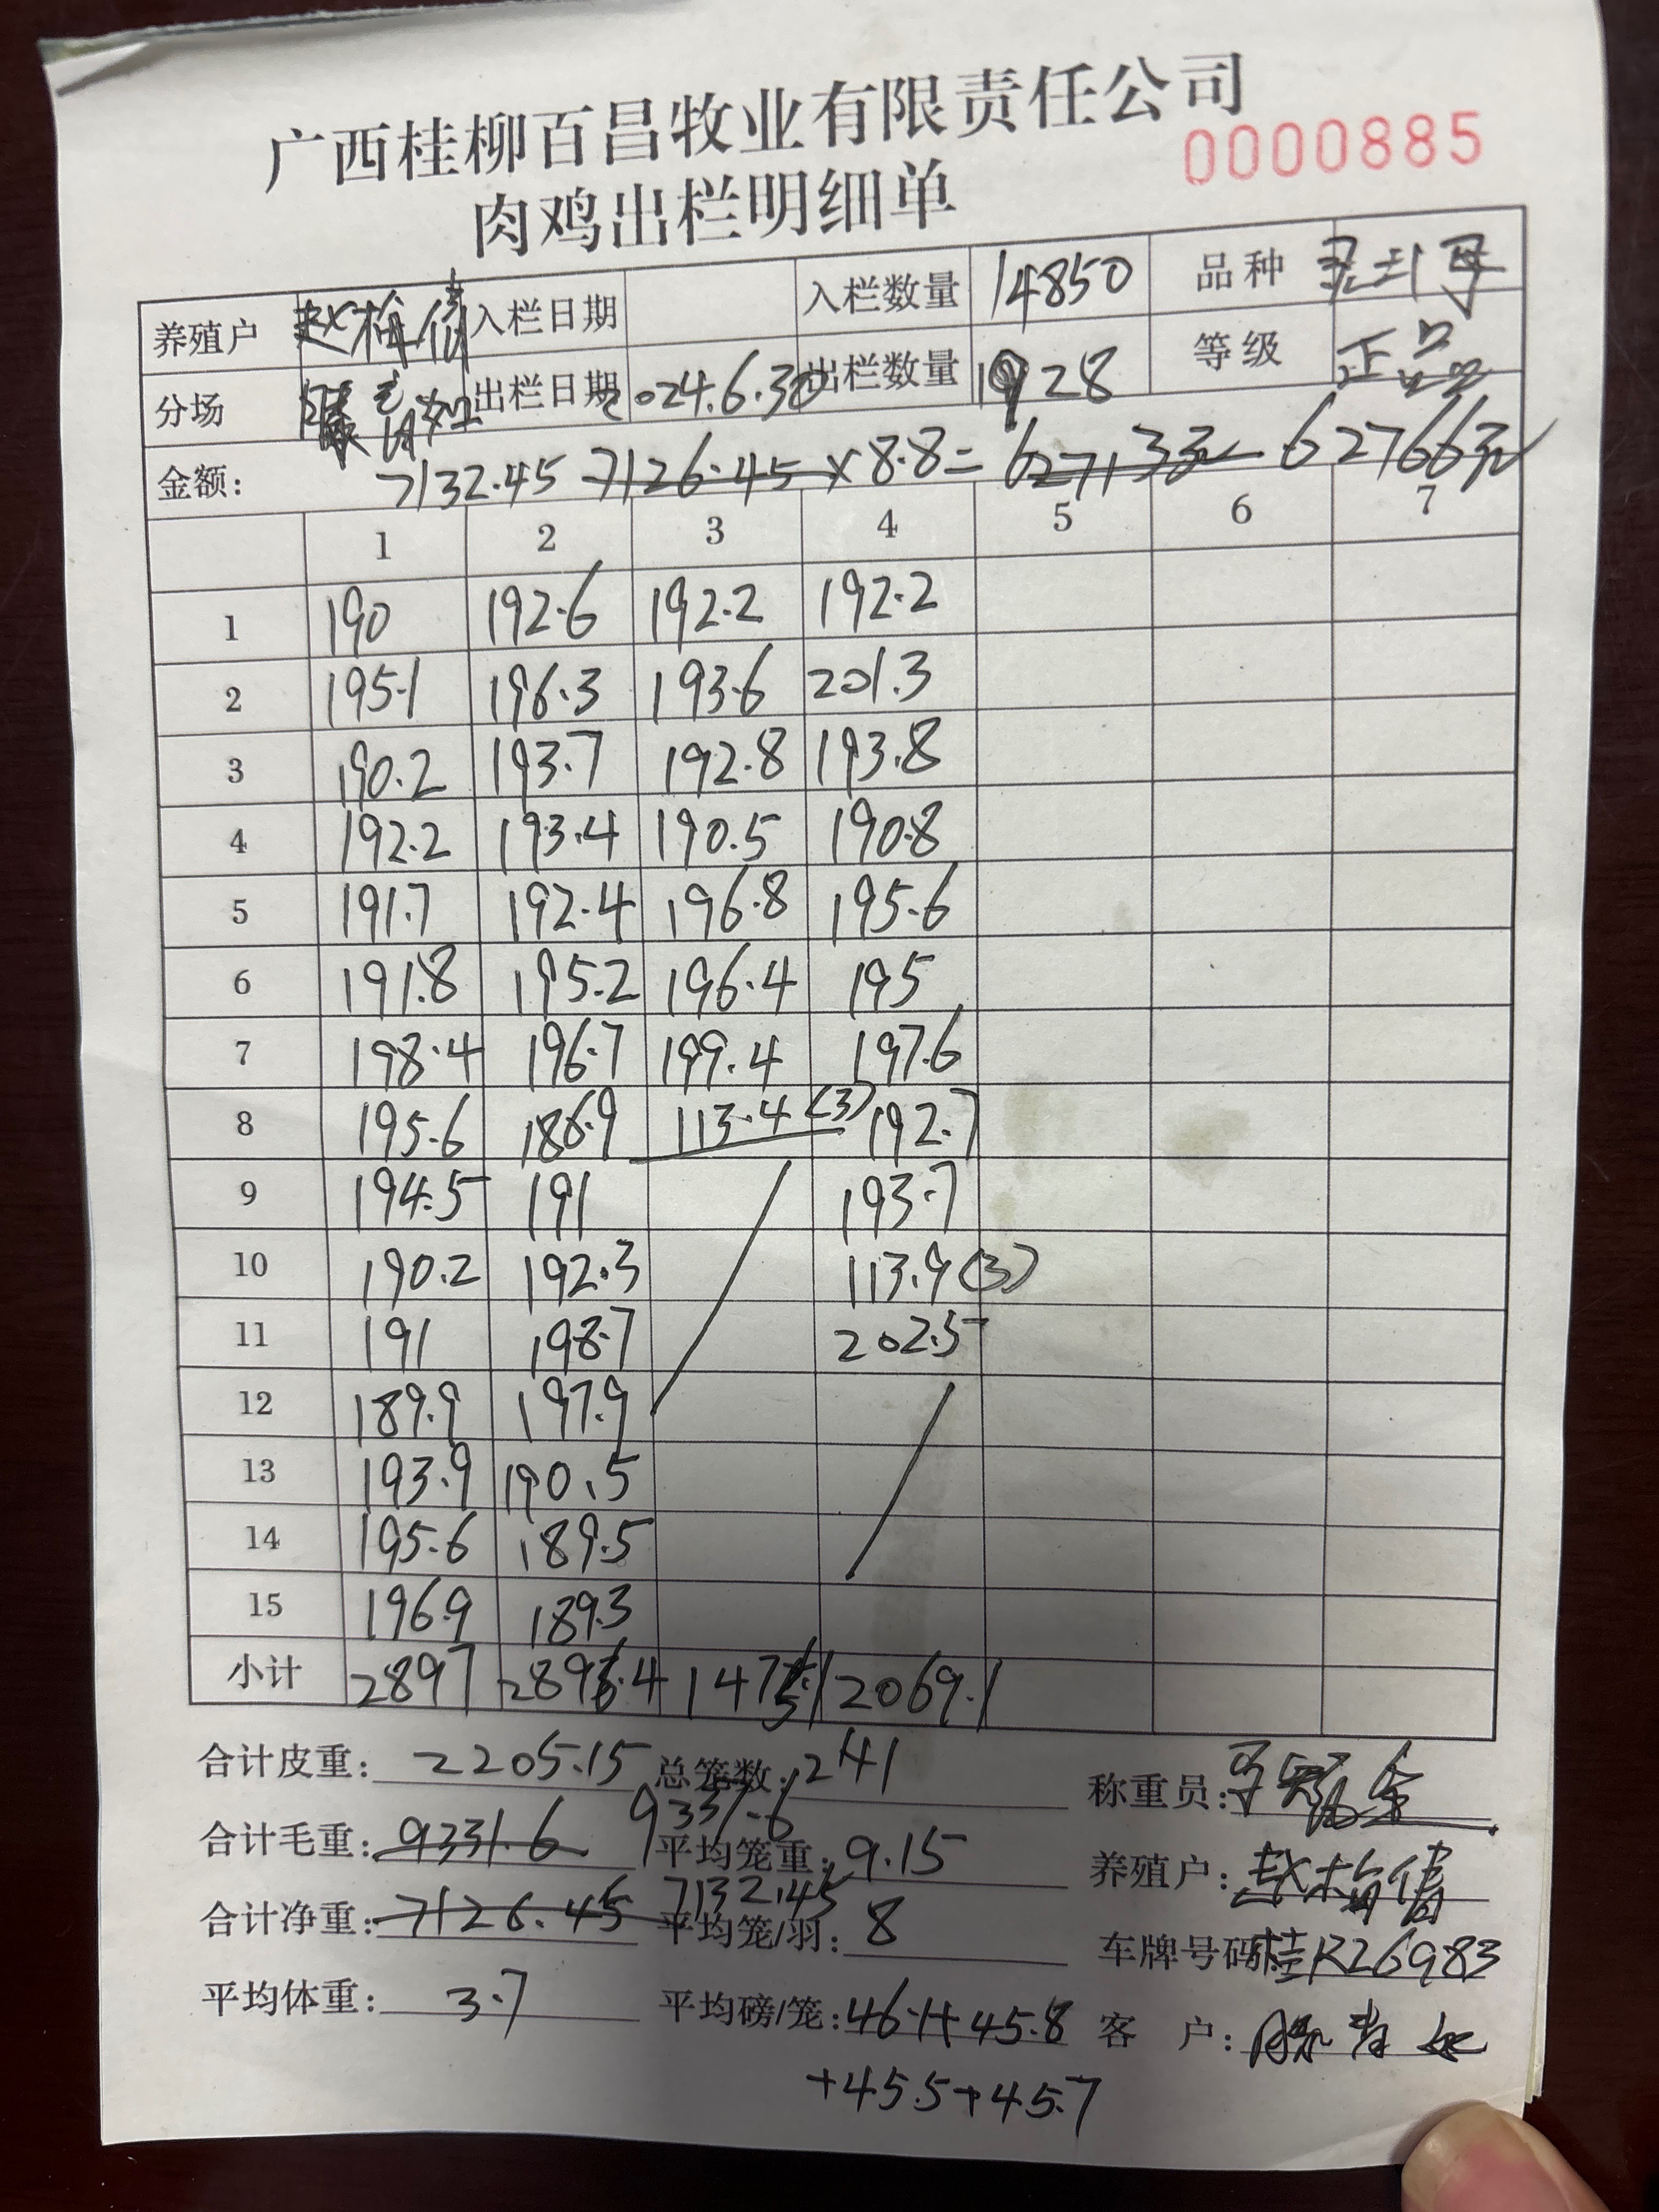 广西桂柳百昌牧业有限责任公司
0000885
肉鸡出栏明细单
养殖户 入栏日期 入栏数量 14850 品种
分场 出栏日期 2024.6.30 出栏数量 1928 等级 正品
金额: 7132.45 7126.45×8.8= 62713元 62766元
1 2 3 4 5 6 7
1 190 192.6 192.2 192.2
2 195.1 196.3 193.6 201.3
3 190.2 193.7 192.8 193.8
4 192.2 193.4 190.5 190.8
5 191.7 192.4 196.8 195.6
6 191.8 195.2 196.4 195
7 198.4 196.7 199.4 197.6
8 195.6 186.9 113.4(3) 192.7
9 194.5 191 193.7
10 190.2 192.3 113.9(3)
11 191 198.7 202.5
12 189.9 197.9
13 193.9 190.5
14 195.6 189.5
15 196.9 189.3
小计 2897 2896.4 1475.1 2069.1
合计皮重: 2205.15 总笼数: 241 称重员:
合计毛重: 9331.6 9337.6 平均笼重: 9.15 养殖户:
合计净重: 7126.45 7132.45 平均笼/羽: 8 车牌号码: 桂R26983
平均体重: 3.7 平均磅/笼: 46.1+45.8 客 户:
+45.5+45.7